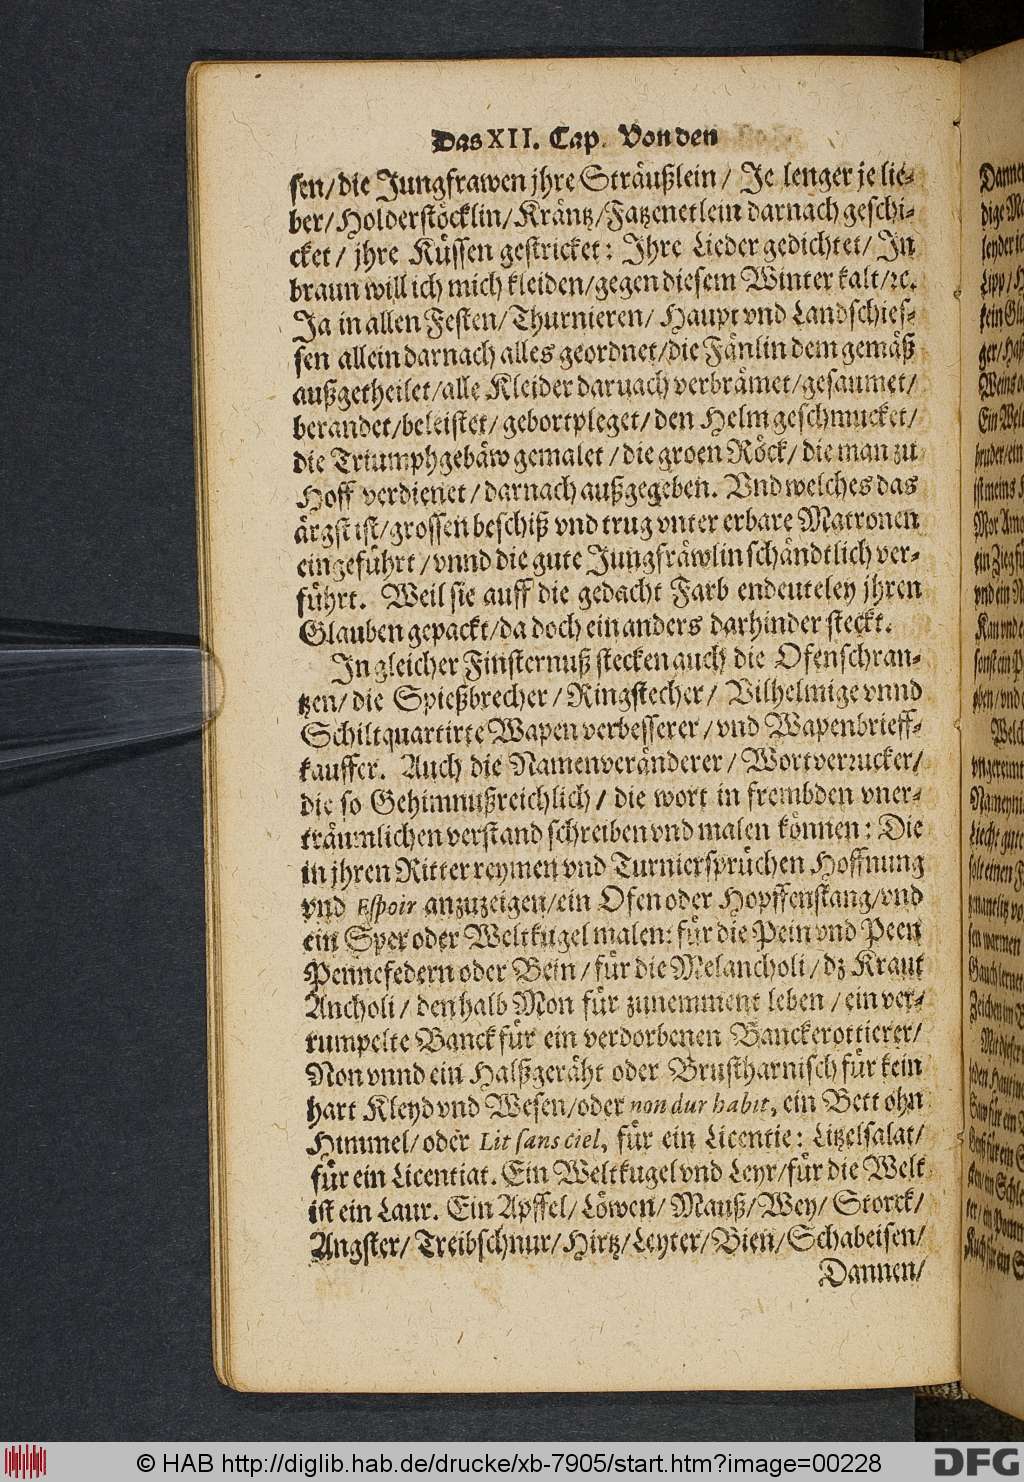 Das XII. Cap. Von den
sen/die Jungfrawen jhre Sträußlein/ Je lenger je lie-
ber/Holderstöcklin/Kräntz/Fatzenetlein darnach geschi-
cket/ jhre Küssen gestricket: Ihre Lieder gedichtet/ In
braun will ich mich kleiden/gegen diesem Winter kalt/ꝛc.
Ja in allen Festen/Thurnieren/ Haupt vnd Landschies-
sen allein darnach alles geordnet/die Fänlin dem gemäß
außgetheilet/alle Kleider daruach verbrämet/gesaumet/
berandet/beleistet/gebortpleget/den Helm geschmucket/
die Triumphgebäw gemalet/die groen Röck/die man zu
Hoff verdienet/darnach außgegeben. Vnd welches das
ärgst ist/grossen beschiß vnd trug vnter erbare Matronen
eingeführt/vnnd die gute Jungfräwlin schändtlich ver-
führt. Weil sie auff die gedacht Farb endeuteley jhren
Glauben gepackt/da doch ein anders darhinder steckt.
In gleicher Finsternuß stecken auch die Ofenschran-
tzen/die Spießbrecher/Ringstecher/ Vilhelmige vnnd
Schiltquartirte Wapen verbesserer/vnd Wapenbrieff-
kauffer. Auch die Namenveränderer/Wortverrucker/
die so Gehimnußreichlich/die wort in frembden vner-
träumlichen verstand schreiben vnd malen können: Die
in jhren Ritterreymen vnd Turniersprüchen Hoffnung
vnd Espoir anzuzeigen/ein Ofen oder Hopffenstang/vnd
ein Sper oder Weltkugel malen: für die Pein vnd Peen
Pennefedern oder Bein/für die Melancholi/dz Kraut
Ancholi/den halb Mon für zunemment leben/ein ver-
rumpelte Banck für ein verdorbenen Banckerottierer/
Non vnnd ein Halßgeräht oder Brustharnisch für kein
hart Kleyd vnd Wesen/oder non dur habit, ein Bett ohn
Himmel/oder Lit sans ciel, für ein Licentie: Litzelsalat/
für ein Licentiat. Ein Weltkugel vnd Leyr/für die Welt
ist ein Laur. Ein Apffel/Löwen/Mauß/Wey/Storck/
Angster/Treibschnur/Hirtz/Leyter/Bien/Schabeisen/
Dannen/
© HAB http://diglib.hab.de/drucke/xb-7905/start.htm?image=00228
DFG